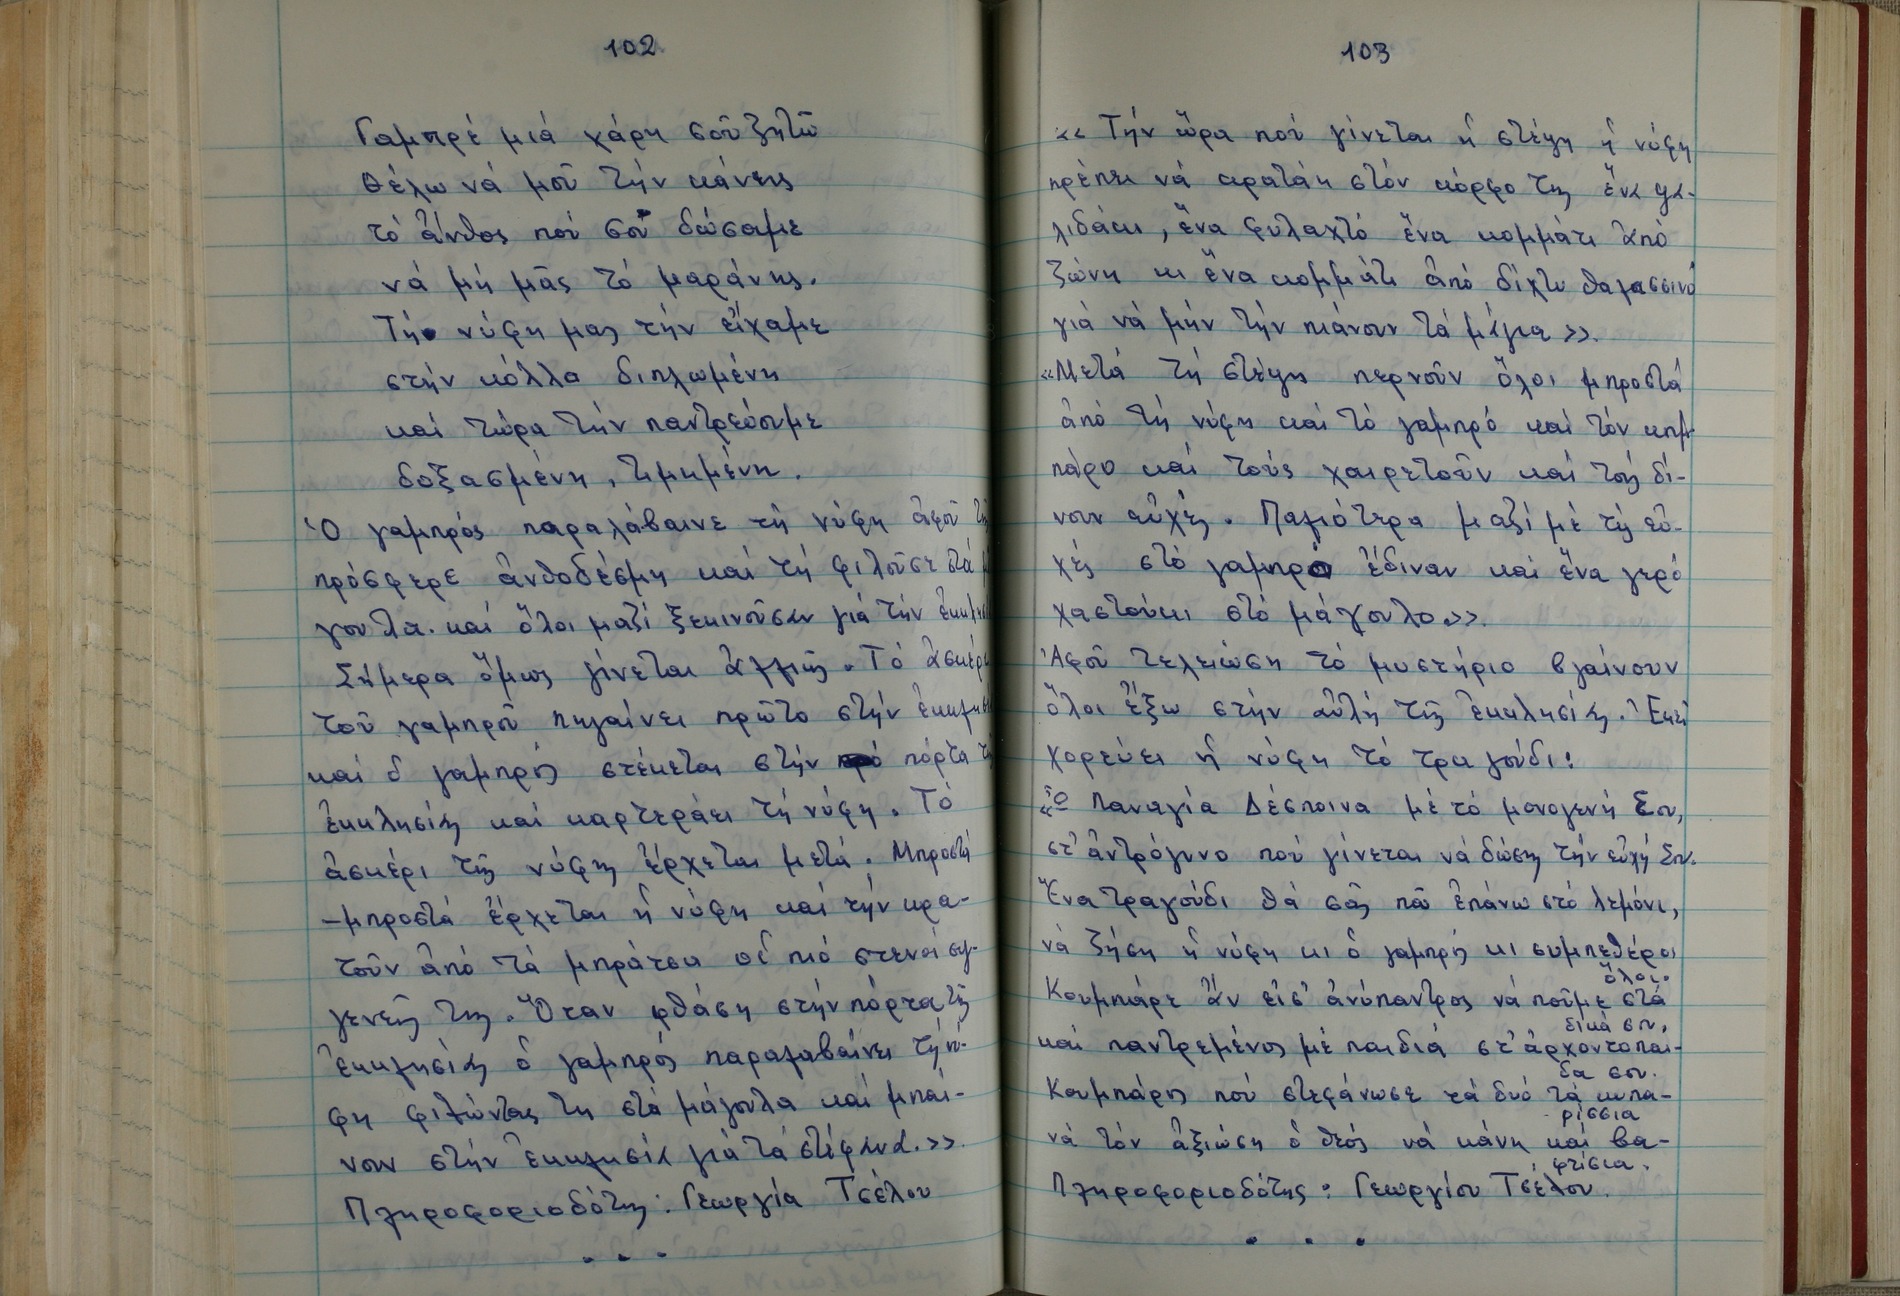 102
Γαμπρέ μιά χάρη σοῦ ζητῶ
θέλω νά μοῦ τήν κάνεις
τό ἄνθος πού σοῦ δώσαμε
νά μή μᾶς τό μαράνης.
Τή νύφη μας τήν εἴχαμε
στήν κόλλα διπλωμένη
καί τώρα τήν παντρεύουμε
δοξασμένη, τιμημένη.
Ὁ γαμπρός παραλάβαινε τή νύφη ἀφοῦ τῆς
πρόσφερε ἀνθοδέσμη καί τή φιλοῦσε στά
γουλα. καί ὅλοι μαζί ξεκινοῦσαν γιά τήν ἐκκλησ
Σήμερα ὅμως γίνεται ἀλλιῶς. Τό ἀσκέρι
τοῦ γαμπροῦ πηγαίνει πρῶτο στήν ἐκκλησ
καί ὁ γαμπρός στέκεται στήν πόρτα τῆς
ἐκκλησίας καί καρτεράει τή νύφη. Τό
ἀσκέρι τῆς νύφης ἔρχεται μετά. Μπροστά
-μπροστά ἔρχεται ἡ νύφη καί τήν κρα-
τοῦν ἀπό τά μπράτσα οἱ πιό στενοί συγ-
γενεῖς της. Ὅταν φθάση στήν πόρτα τῆς
ἐκκλησίας ὁ γαμπρός παραλαβαίνει τή νύ-
φη φιλώντας τη στά μάγουλα καί μπαί-
νουν στήν ἐκκλησία γιά τά στέφανα.>>
Πληροφοριοδότης: Γεωργία Τσέλου
. . .
103
<< Τήν ὥρα πού γίνεται ἡ στέψη ἡ νύφη
πρέπει νά κρατάη στόν κόρφο της ἕνα ψα-
λιδάκι, ἕνα φυλαχτό ἕνα κομμάτι ἀπό
ζώνη κι ἕνα κομμάτι ἀπό δίχτυ θαλασσινό
γιά νά μήν τήν πιάνουν τά μάγια>>.
<<Μετά τή στέψη περνοῦν ὅλοι μπροστά
ἀπό τή νύφη καί τό γαμπρό καί τόν κουμ-
πάρο καί τούς χαιρετοῦν καί τούς δί-
νουν εὐχές. Παλιότερα μαζί μέ τίς εὐ-
χές στό γαμπρό ἔδιναν καί ἕνα γερό
χαστούκι στό μάγουλο>>.
Ἀφοῦ τελειώση τό μυστήριο βγαίνουν
ὅλοι ἔξω στήν αὐλή τῆς ἐκκλησίας. Ἐκεῖ
χορεύει ἡ νύφη τό τραγούδι:
<<Ὦ Παναγία Δέσποινα μέ τό μονογενή Σου,
στ' ἀντρόγυνο πού γίνεται νά δώσης τήν εὐχή Σου.
Ἕνα τραγούδι θά σᾶς πῶ ἐπάνω στό λεμόνι,
νά ζήση ἡ νύφη κι ὁ γαμπρός κι συμπεθέροι
ὅλοι.
Κουμπάρε ἄν εἶσ' ἀνύπαντρος νά ποῦμε στά
δικά σου,
καί παντρεμένος μέ παιδιά στ' ἀρχοντοπαί-
δα σου.
Κουμπάρος πού στεφάνωσε τά δυό τά κυπα-
ρίσσια
νά τόν ἀξιώση ὁ θεός νά κάνη καί βα-
φτίσια.
Πληροφοριοδότης: Γεωργίου Τσέλου.
. . .